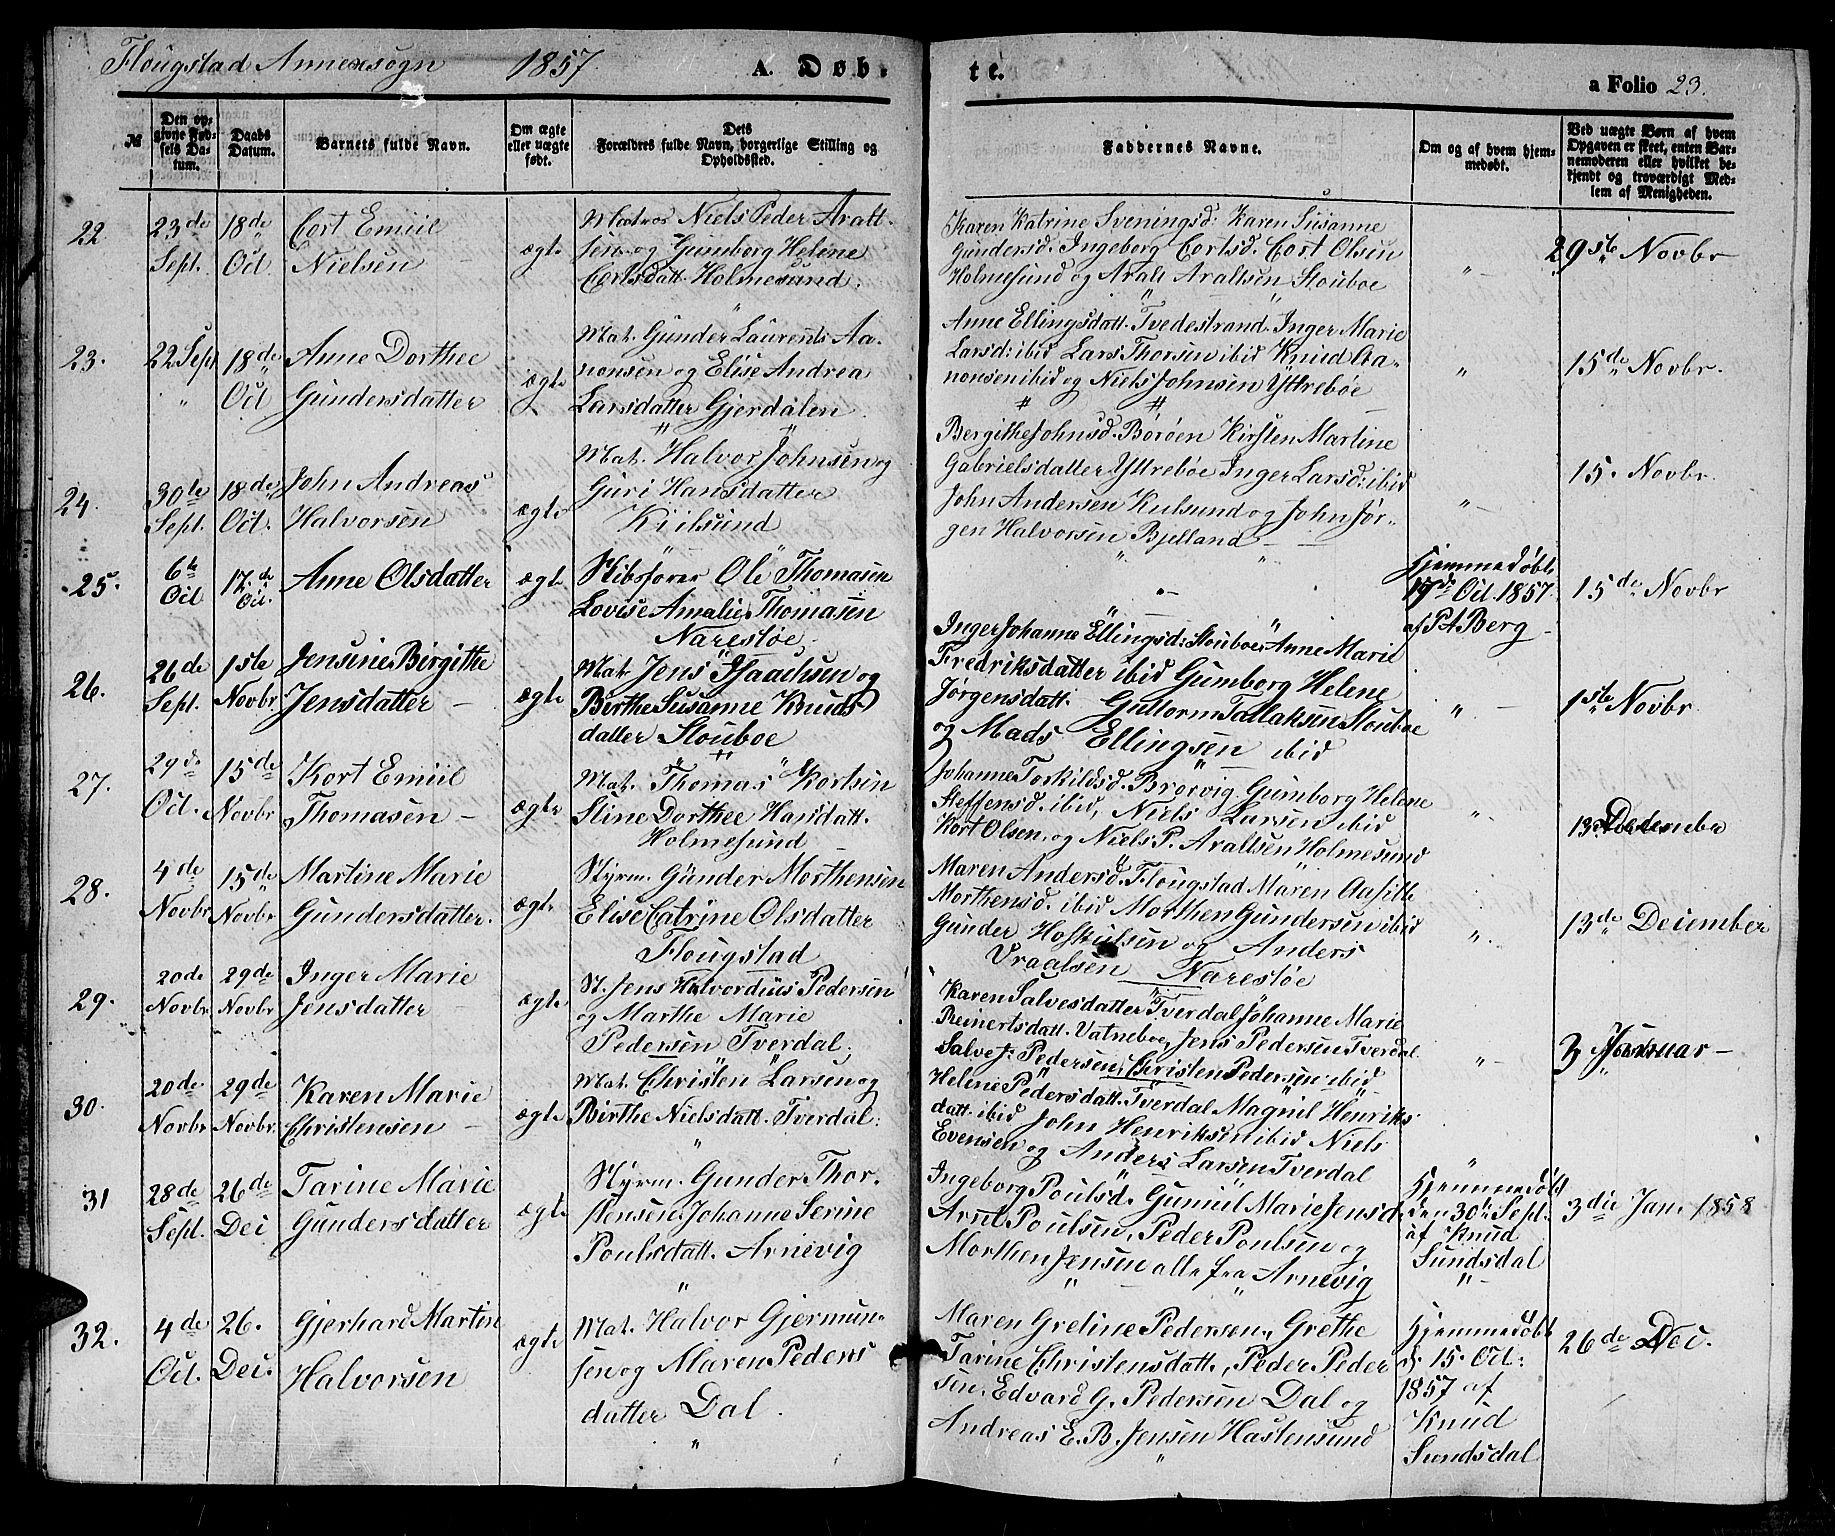 Flougstad Annexsogn 1857 A. Døb-
te. a Folio 23.
№
Den op-
givne Fød-
sels Da-
tum.
Daabs
Datum.
Barnets fulde Navn.
Om ægte
eller uægte
født.
Dets
Forældres fulde Navn, borgerlige Stilling og
Opholdssted.
Faddernes Navne.
Om og af hvem hjem-
medøbt.
Ved uægte Børn af hvem
Opgaven er skeet, enten Bar-
nemoderen eller hvilket be-
kjendt og troværdigt Med-
lem af Menigheden.
22
23de
Sept.
18de
Oct
Cort Emiil
Nielsen
ægte
Matros Niels Peder Aralt-
sen og Gumborg Helene
Cortsdatt. Holmesund.
Karen Katrine Sveningsd: Karen Susanne
Gundersd. Ingeborg Cortsd. Cort Olsen
Holmesund og Aralt Araltsen Stouboe
"
29ste Novbr
23.
22 Sept
"
18de
Oct
Anne Dorthee
Gundersdatter
ægte
Mat. Gunder Laurents Aa-
nonsen og Elise Andrea
Larsdatter Gjerdalen
Anne Ellingsdatt. Tvedestrand. Inger Marie
Larsd: ibid Lars Thorsen ibid Knud Aa-
nonsen ibid og Niels Johnsen Yttrebøe
"
15de Novbr.
24.
30te
Sept.
18de
Oct.
John Andreas
Halvorsen
ægte
Mat. Halvor Johnsen og
Guri Hansdatter
Kiilsund
Bergithe Johnsd. Borøen Kirsten Martine
Gabrielsdatter Yttrebøe Inger Larsd: ibid
John Andersen Kulsund og John Jør-
gen Halvorsen Bjelland
"
15. Novbr.
25.
6te
Oct
17.de
Oct.
Anne Olsdatter
ægte
Skibsfører Ole Thomasen
Lovise Amalie Thomasen
Narestøe
"
Hjemmedøbt
17de Oct. 1857.
af P A Berg
15de Novbr
26.
26de
Sept.
1ste
Novbr
Jensine Birgithe
Jensdatter
ægte
Mat. Jens Isaachsen og
Birthe Susanne Knuds-
datter Stouboe
Inger Johanne Ellingsd: Stouboe Anne Marie
Fredriksdatter ibid Gumborg Helene
Jørgensdatt. Guttorm Tallaksen Stouboe
og Mads Ellingsen ibid
"
1ste Novbr.
27.
29de
Oct.
15de
Novbr
Kort Emiil
Thomasen
ægte
Mat. Thomas Kortsen
Stine Dorthee Hansdatt.
Holmesund
Johanne Torkildsd. Brorvig. Gumborg Helene
Steffensd. ibid, Niels Larsen ibid
Kort Olsen. og Niels P. Araltsen Holmesund
"
13de December
28.
4de
Novbr
15de
Novbr
Martine Marie
Gundersdatter.
ægte
Styrm. Gunder Morthensen
Elise Catrine Olsdatter
Flougstad
Maren Andersd. Flougstad Maren Aasille
Morthensd. ibid Morthen Gundersen ibid
Gunder Hoskulsen og Anders
Vraalsen Narestøe
"
13de December
29.
20de
Novbr
29de
Novbr
Inger Marie
Jensdatter
ægte
St. Jens Halvordius Pedersen
og Marthe Marie
Pedersen Tverdal.
Karen Salvesdatter Tverdal Johanne Marie
Reinertsdatt. Vatneboe, Jens Pedersen Tverdal
Salve J. Pedersen, Christen Pedersen ibid
"
3 Januar
30.
20de
Novbr
29de
Novbr.
Karen Marie
Christensen
ægte
Mat. Christen Larsen og
Birthe Nielsdatt. Tverdal.
Heline Pedersdatt. Tverdal Magnil Henriks-
datt. ibid John Henriksen ibid Niels
Evensen og Anders Larsen Tverdal
31
28de
Sept.
26de
Dec
Tarine Marie
Gundersdatter
ægte
Styrm. Gunder Thor-
stensen. Johanne Serine
Poulsdatt. Arnevig
Ingeborg Poulsd. Gumiil Marie Jensd.
Arnt Poulsen, Peder Poulsen og
Morthen Jensen alle fra Arnevig
Hjemmedøbt
den 30te Sept.
af Knud
Sundsdal
3die Jan. 1858
32.
4de
Oct.
26.
Dec.
Gjerhard Martin
Halvorsen
ægte
Mat. Halvor Gjermun-
sen og Maren Peders-
datter Dal.
Maren Greline Pedersen, Grethe
Tarine Christensdatt., Peder Peder-
sen, Edvard G. Pedersen Dal og
Andreas E. B. Jensen Hastensund
Hjemmedøbt
d. 15. Oct.
1857 af
Knud
Sundsdal
26de Dec.